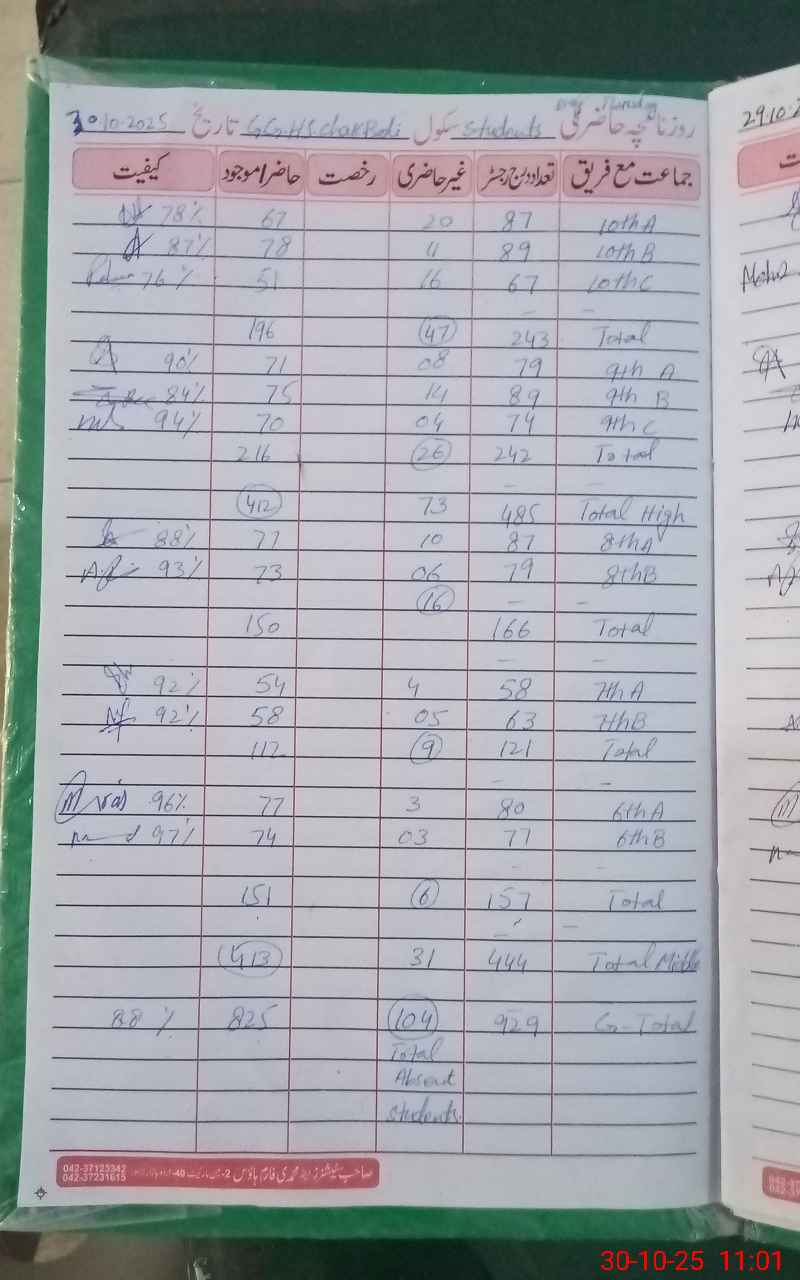 Day Thursday
روزنامچہ حاضری students سکول G.G.H.S chak Bedi تاریخ 30.10.2025
جماعت مع فریق تعداد درج رجسٹر غیر حاضری رخصت حاضر/موجود کیفیت
10th A 87 20 67 78%
10th B 89 11 78 87%
10th C 67 16 51 76%
Total 243 47 196
9th A 79 08 71 90%
9th B 89 14 75 84%
9th C 74 04 70 94%
Total 242 26 216
Total High 485 73 412
8th A 87 10 77 88%
8th B 79 06 73 93%
16
Total 166 150
7th A 58 4 54 92%
7th B 63 05 58 92%
Total 121 9 112
6th A 80 3 77 96%
6th B 77 03 74 97%
Total 157 6 151
Total Middle 444 31 413
G-Total 929 104 825 88%
Total
Absent
students
042-37123342
042-37231615
29.10.2
30-10-25 11:01